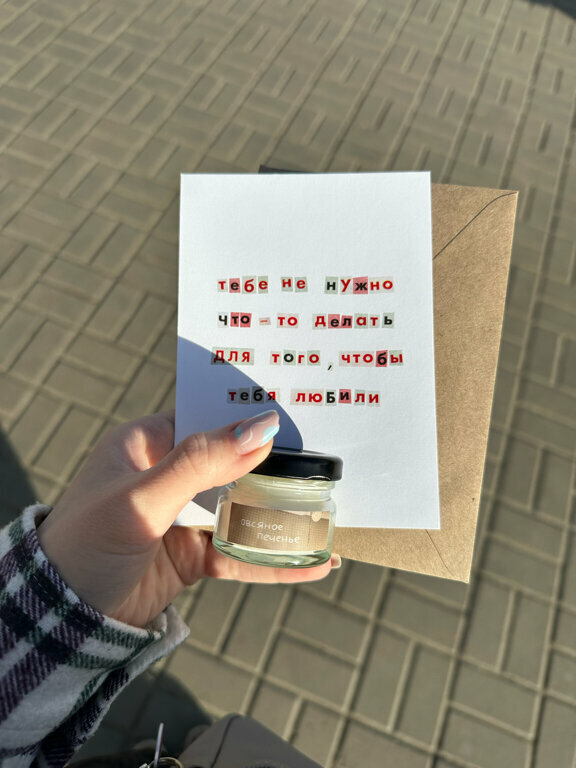 тебе не нужно
что-то делать
для того, чтобы
тебя любили
овсяное
печенье